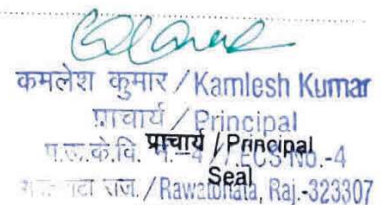 कमलेश कुमार / Kamlesh Kumar
प्राचार्य / Principal
प.ऊ.के.वि. / AECS No.-4
प्राचार्य / Principal
Seal
राज. / Rawatbhata, Raj.-323307